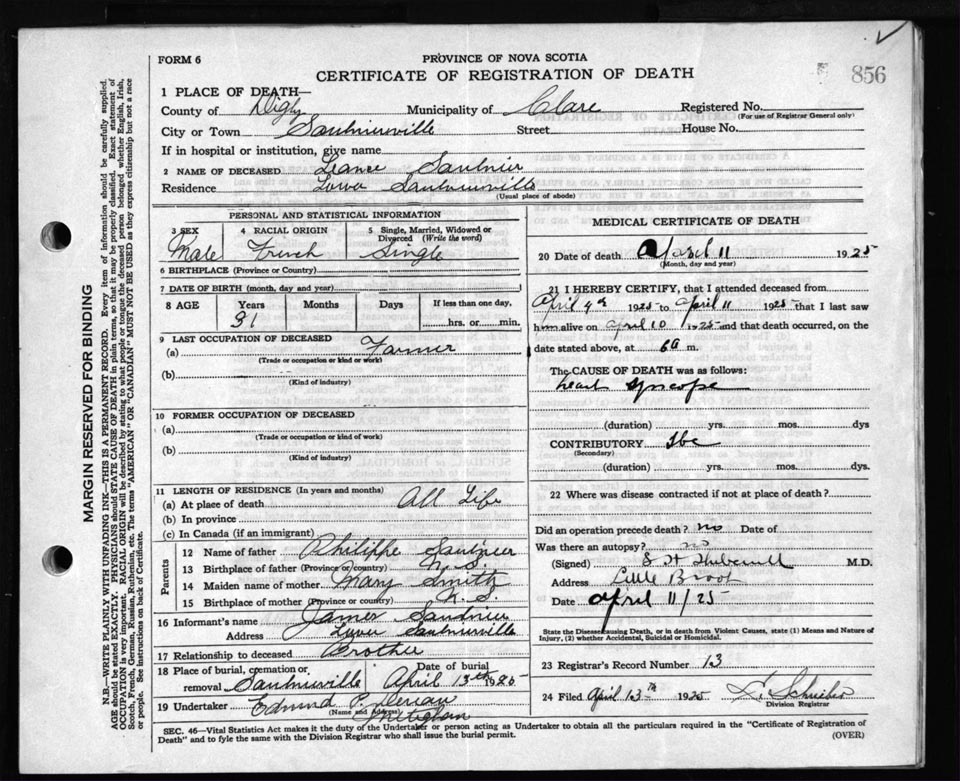 856
FORM 6
PROVINCE OF NOVA SCOTIA
CERTIFICATE OF REGISTRATION OF DEATH
1 PLACE OF DEATH—
County of Digby Municipality of Clare Registered No.
(For use of Registrar General only)
City or Town Saulnierville Street House No.
If in hospital or institution, give name
2 NAME OF DECEASED Saulnier
Residence Lower Saulnierville
(Usual place of abode)
PERSONAL AND STATISTICAL INFORMATION
3 SEX 4 RACIAL ORIGIN 5 Single, Married, Widowed or Divorced (Write the word)
Male French Single
6 BIRTHPLACE (Province or Country)
7 DATE OF BIRTH (month, day and year)
8 AGE Years Months Days If less than one day,
31 hrs. or min.
9 LAST OCCUPATION OF DECEASED
(a) Farmer
(Trade or occupation or kind or work)
(b)
(Kind of industry)
10 FORMER OCCUPATION OF DECEASED
(a)
(Trade or occupation or kind of work)
(b)
(Kind of industry)
11 LENGTH OF RESIDENCE (In years and months)
(a) At place of death All Life
(b) In province
(c) In Canada (if an immigrant)
Parents
12 Name of father Philippe Saulnier
13 Birthplace of father (Province or country) N. S.
14 Maiden name of mother Mary Smith
15 Birthplace of mother (Province or country) N. S.
16 Informant's name James Saulnier
Address Lower Saulnierville
17 Relationship to deceased Brother
18 Place of burial, cremation or removal Saulnierville Date of burial April 13th 1925
19 Undertaker Edmund P.
(Name and Address) Meteghan
MEDICAL CERTIFICATE OF DEATH
20 Date of death April 11 1925
(Month, day and year)
21 I HEREBY CERTIFY, that I attended deceased from
April 9th 1925 to April 11 1925 that I last saw
him alive on April 10 1925 and that death occurred, on
date stated above, at 6a m.
The CAUSE OF DEATH was as follows:
heart syncope
(duration) yrs. mos. dys
CONTRIBUTORY Tbc
(Secondary)
(duration) yrs. mos. dys.
22 Where was disease contracted if not at place of death?
Did an operation precede death? no Date of
Was there an autopsy? no
(Signed) M.D.
Address Little Brook
Date April 11/25
State the Disease causing Death, or in death from Violent Causes, state (1) Means and Nature of
Injury, (2) whether Accidental, Suicidal or Homicidal.
23 Registrar's Record Number 13
24 Filed April 13th 1925
Division Registrar
SEC. 46—Vital Statistics Act makes it the duty of the Undertaker or person acting as Undertaker to obtain all the particulars required in the "Certificate of Registration of
Death" and to fyle the same with the Division Registrar who shall issue the burial permit.
(OVER)
MARGIN RESERVED FOR BINDING
N.B.—WRITE PLAINLY WITH UNFADING INK—THIS IS A PERMANENT RECORD. Every item of information should be carefully supplied.
AGE should be stated EXACTLY. PHYSICIANS should STATE CAUSE OF DEATH in plain terms, so that it may be properly classified. Exact statement of
OCCUPATION is very important. RACIAL ORIGIN will be described by stating to what people or tongue the deceased person belonged whether English, Irish,
Scotch, French, German, Russian, Ruthenian, etc. The terms "AMERICAN" or "CANADIAN" MUST NOT BE USED as they express citizenship but not a race
or people. See instructions on back of Certificate.